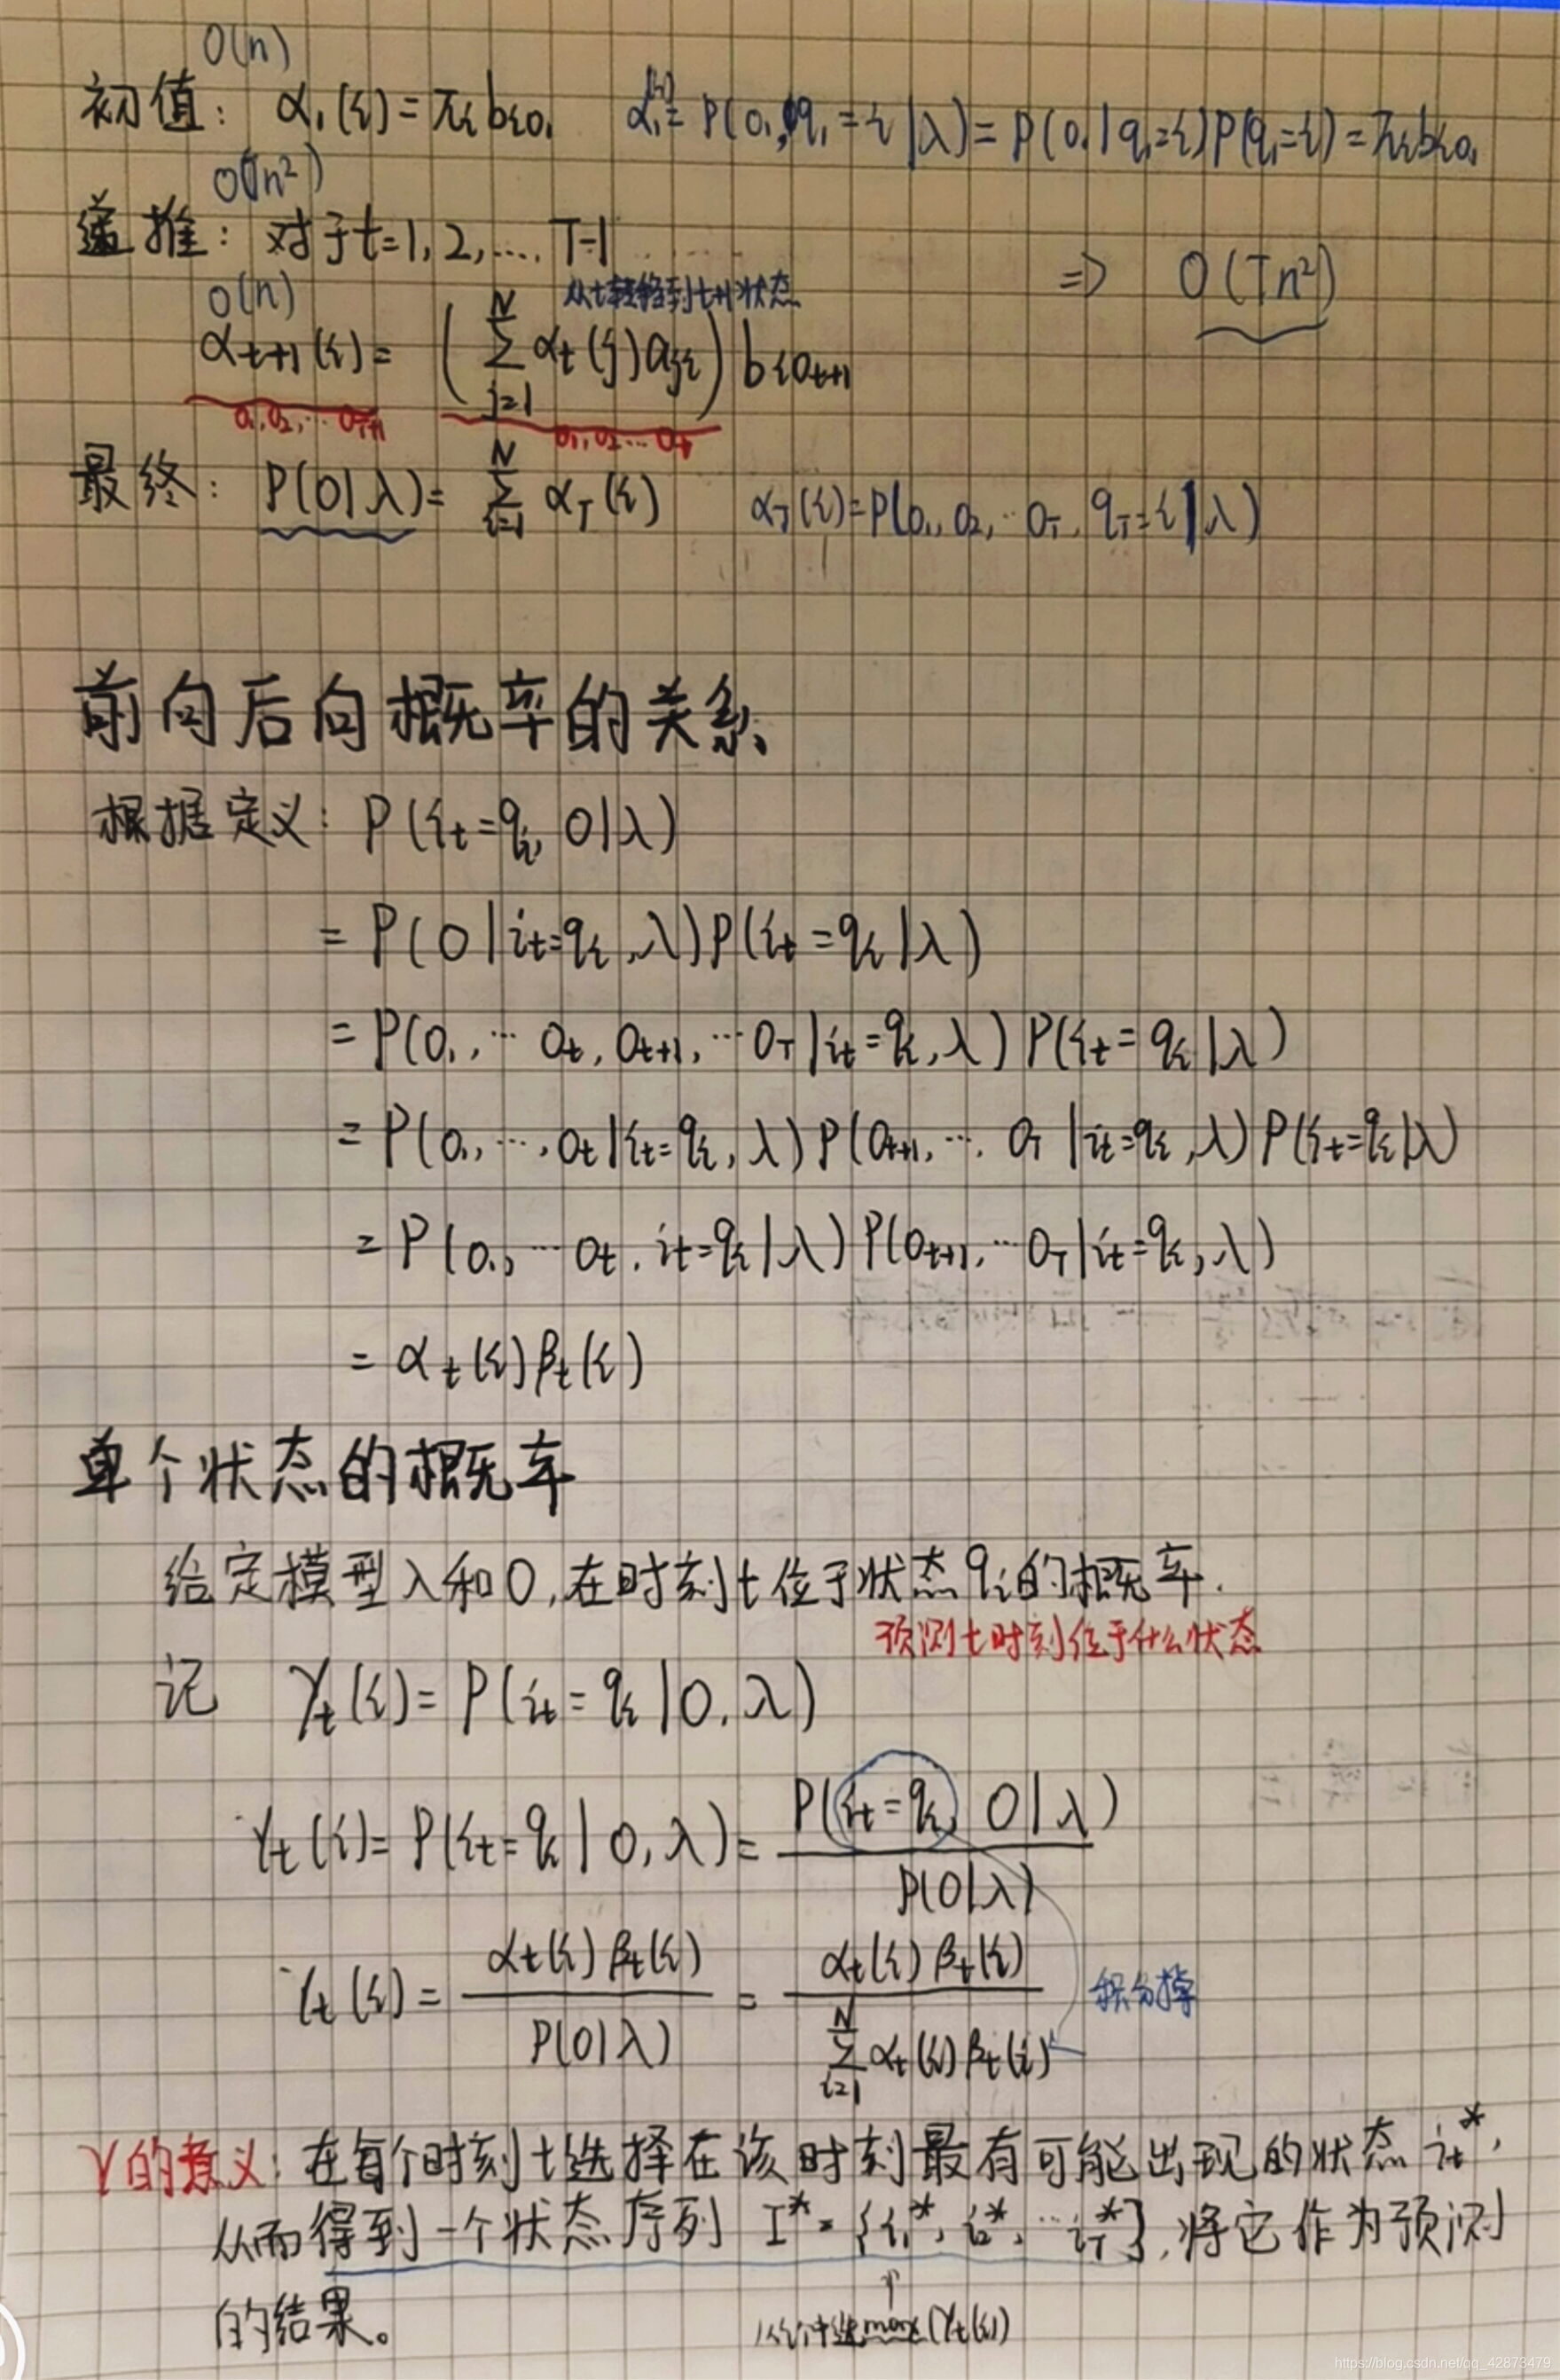 O(n)
初值: α₁(i) = πᵢ bᵢo₁ α₁(i) = P(o₁, q₁ = i | λ) = P(o₁ | q₁=i) P(q₁=i) = πᵢbᵢo₁
O(Tn²)
递推: 对于t=1, 2, .... T-1
⇒ O(Tn²)
O(n) 从t转移到t+1状态
αt+1(i) = ( Σ_{j=1}^{N} αt(j) aji ) bi ot+1
o₁, o₂, ... oT+1 o₁, o₂ ... oT
最终: P(O|λ) = Σ_{i=1}^{N} αT(i) αT(i) = P(o₁, o₂, ... oT, qT = i | λ)
前向后向概率的关系
根据定义: P(it = qi, O|λ)
= P(O | it=qi, λ) P(it = qi | λ)
= P(o₁, ... ot, ot+1, ... oT | it = qi, λ) P(it = qi | λ)
= P(o₁, ..., ot | it = qi, λ) P(ot+1, ... oT | it=qi, λ) P(it=qi|λ)
= P(o₁, ... ot, it=qi | λ) P(ot+1, ... oT | it=qi, λ)
= αt(i) βt(i)
单个状态的概率
给定模型λ和O, 在时刻t位于状态qi的概率.
预测t时刻位于什么状态
记 γt(i) = P(it = qi | O, λ)
γt(i) = P(it = qi | O, λ) = P(it = qi, O|λ) / P(O|λ)
γt(i) = αt(i) βt(i) / P(O|λ) = αt(i) βt(i) / Σ_{i=1}^{N} αt(i) βt(i) 积分掉
γ的意义: 在每个时刻t选择在该时刻最有可能出现的状态 it*,
从而得到一个状态序列 I* = {i₁*, i₂*, ... iT*}, 将它作为预测
的结果。
max(γt(i))
https://blog.csdn.net/qq_42873479